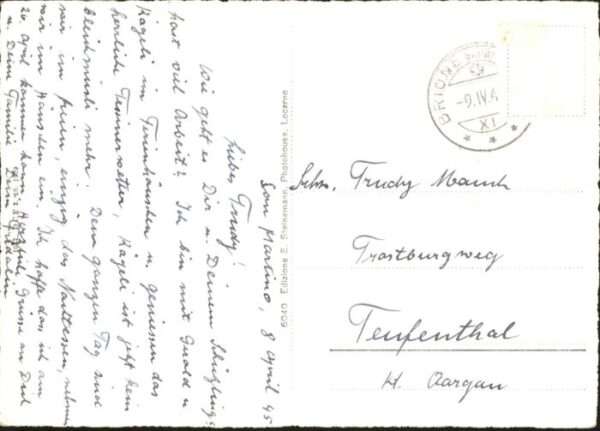 San Martino, 8 April 45
Liebes Trudy!
Wie geht es Dir u. Deinem Schützling?
hast viel Arbeit? Ich bin mit Gerold u
Kägeli im Ferienhäuschen u. geniessen das
herrliche Tessinerwetter, Kägeli ist jetzt kein
mehr. Den ganzen Tag sind
wir im freien, einzig das Nachtessen, nehmen
wir im Häuschen ein. Ich hoffe das ich am
20. April kommen kann. Grüsse an Dich
u. Deine Familie
6040 Edizione E. Steinemann, Photohouse, Locarno
BRIONE
-9.IV.4
XI
Schw. Trudy Mauch
Trostburgweg
Teufenthal
Kt. Aargau